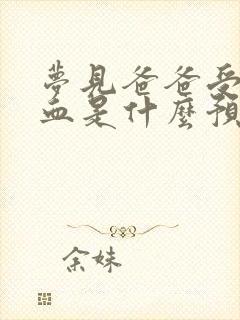 夢見爸爸受
血是什麼預
余妹